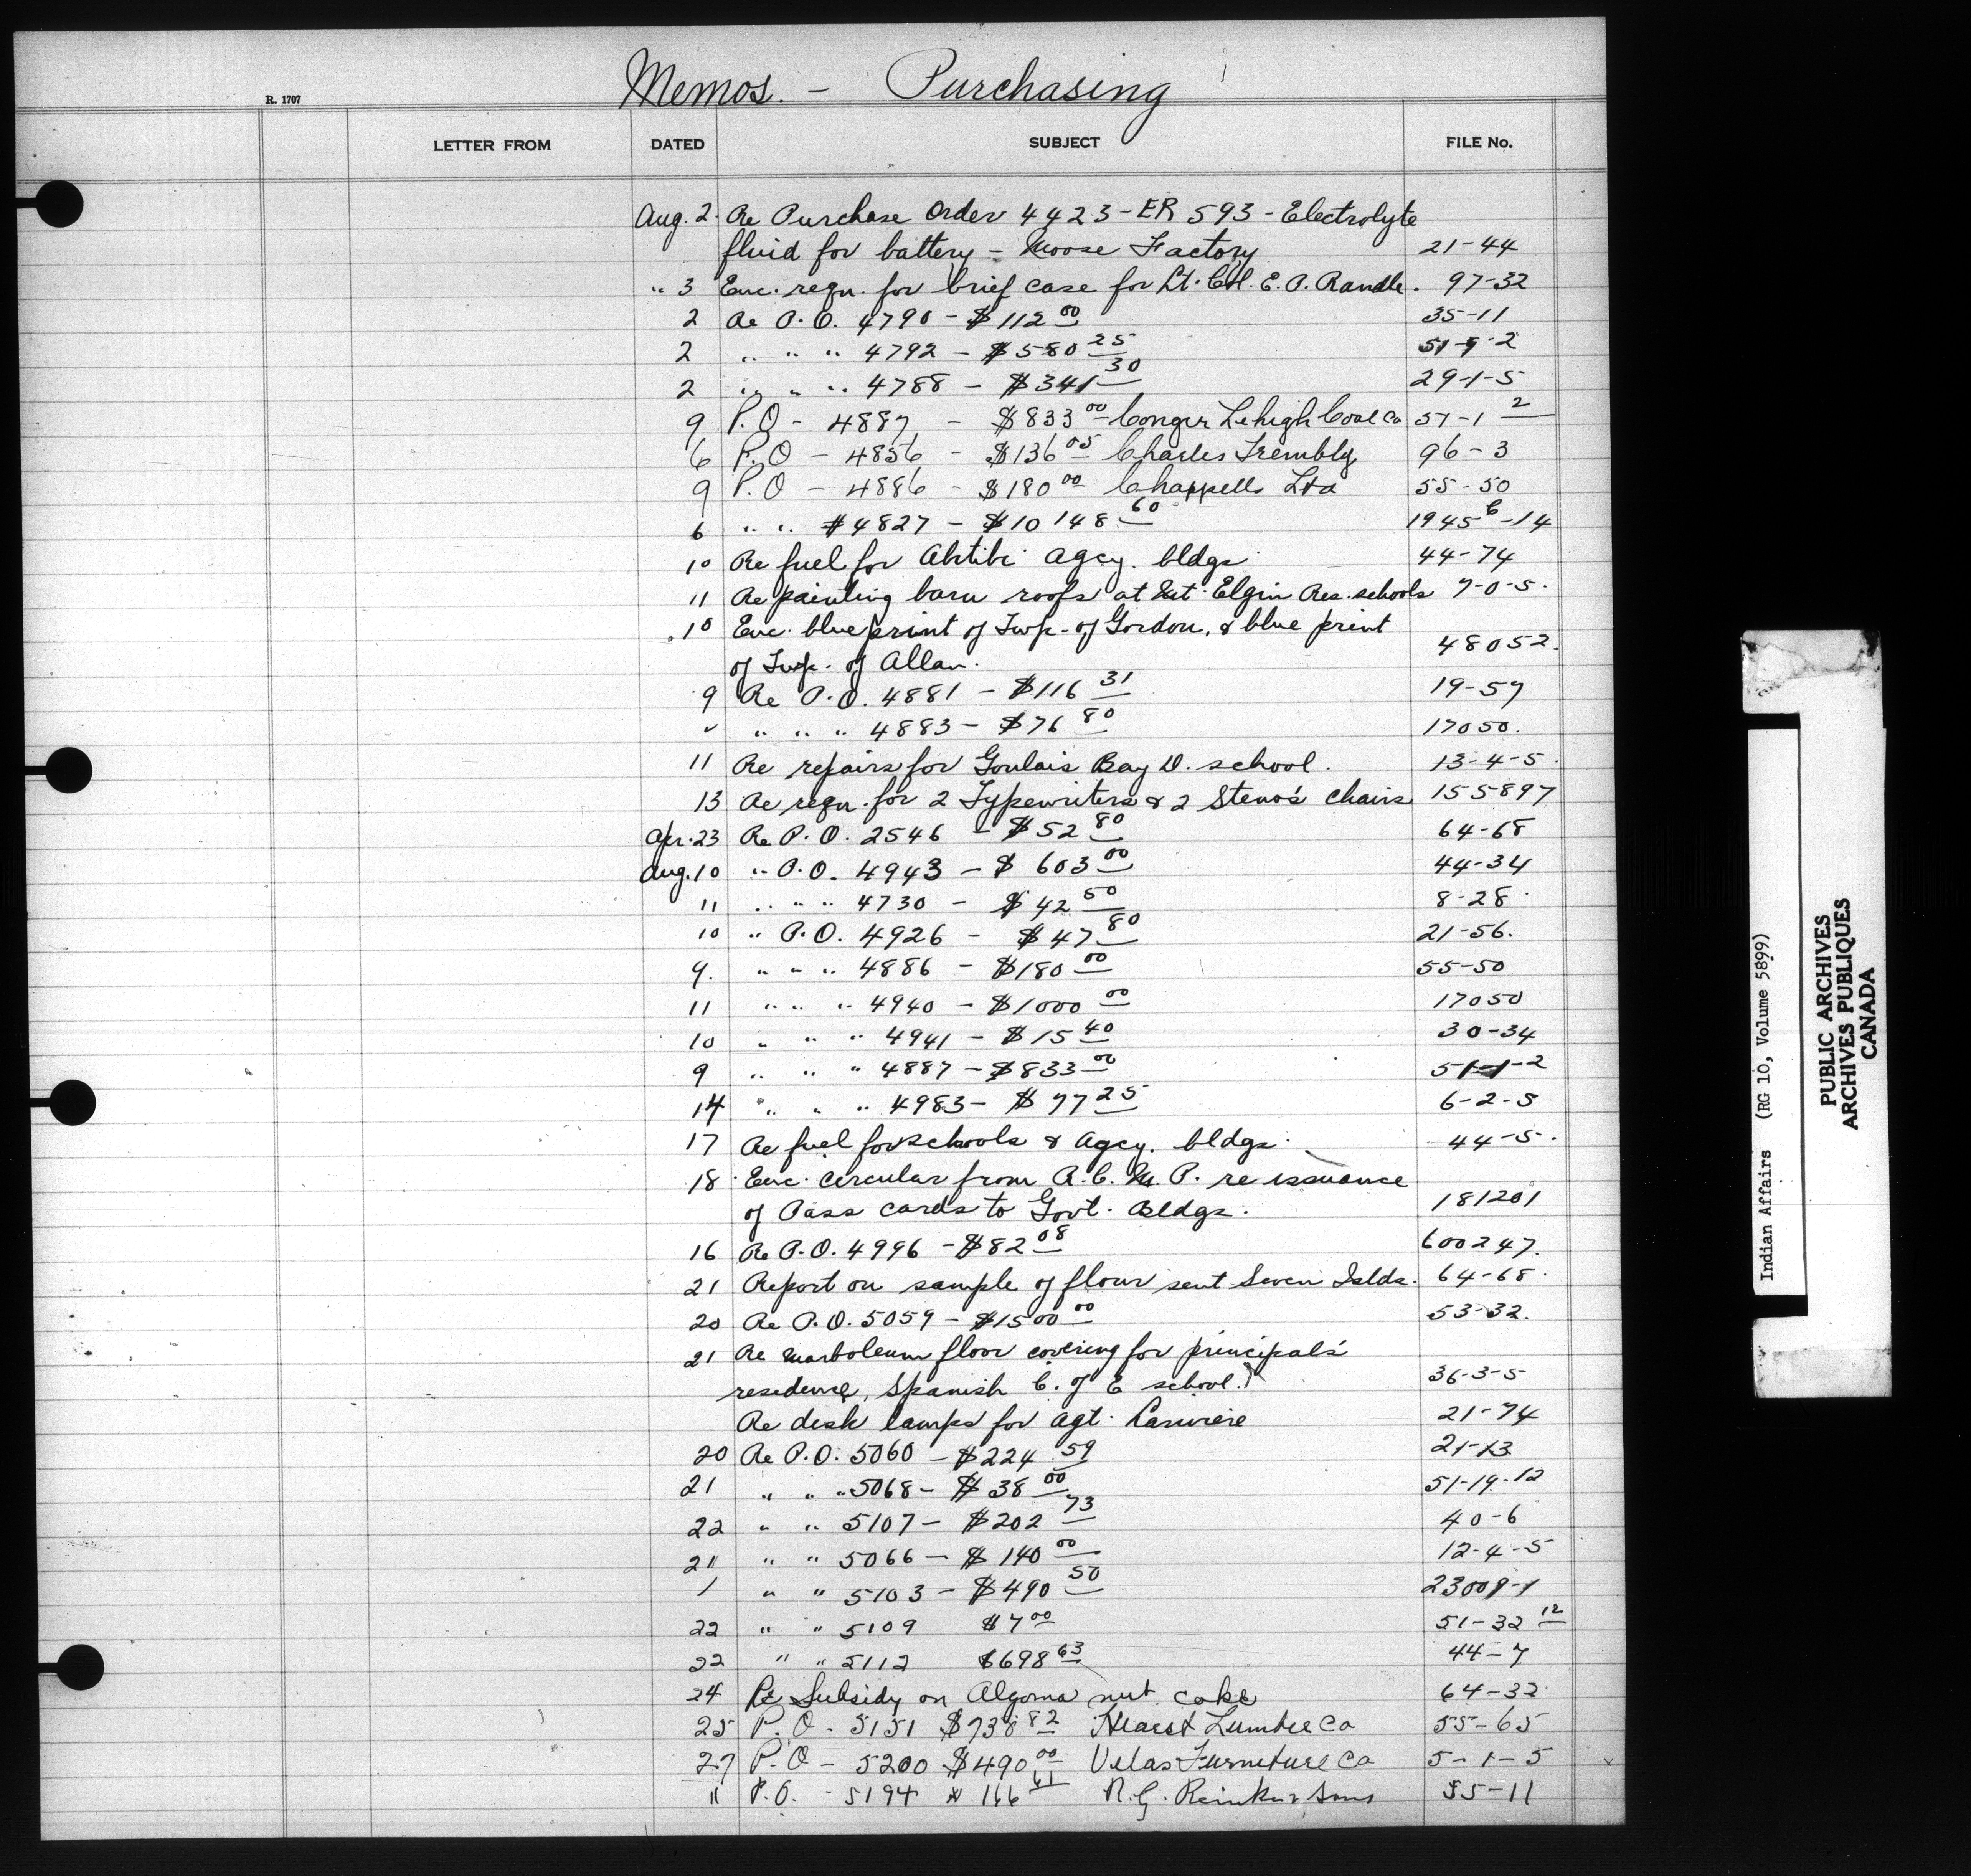 Memos. - Purchasing
R. 1707
LETTER FROM DATED SUBJECT FILE No.
Aug. 2. Re Purchase Order 4423 - ER 593 - Electrolyte
fluid for battery - Moose Factory 21-44
" 3 Enc. reqn. for brief case for Lt. Col. E. P. Randle. 97-32
2 Re P.O. 4790 - $112 00 35-11
2 " " " 4792 - $580 25 51-9-2
2 " " " 4788 - $341 30 29-1-5
9 P.O - 4887 - $833 00 Conger Lehigh Coal Co 51-1 2
6 P.O - 4856 - $136 05 Charles Trembly 96-3
9 P.O - 4886 - $180 00 Chappells Ltd 55-50
6 " " #4827 - $10148 60 1945 C-14
10 Re fuel for Abitibi agcy. bldgs 44-74
11 Re painting barn roofs at Mt. Elgin Res. schools 7-0-5.
10 Enc. blue print of Twp. of Gordon, & blue print
of Twp. of Allan. 48052.
9 Re P.O. 4881 - $116 31 19-57
" " " " 4883 - $76 80 17050.
11 Re repairs for Goulais Bay D. school. 13-4-5.
13 Re reqn. for 2 Typewriters & 2 Steno's chairs 155897
Apr. 23 Re P.O. 2546 - $52 80 64-68
Aug. 10 " P.O. 4943 - $603 00 44-34
11 " " " 4730 - $42 50 8-28.
10 " P.O. 4926 - $47 80 21-56.
9. " " " 4886 - $180 00 55-50
11 " " " 4940 - $1000 00 17050
10 " " " 4941 - $15 40 30-34
9 " " " 4887 - $833 00 51-1-2
14 " " " 4983 - $77 25 6-2-5
17 Re fuel for schools & agcy. bldgs. 44-5.
18 Enc. circular from R.C.M.P. re issuance
of Pass cards to Govt. Bldgs. 181201
16 Re P.O. 4996 - $82 08 600247.
21 Report on sample of flour sent Seven Islds. 64-68.
20 Re P.O. 5059 - $1500 00 53-32.
21 Re Marboleum floor covering for principal's
residence, Spanish C. of E school. 36-3-5
Re desk lamps for agt. Lariviere 21-74
20 Re P.O. 5060 - $224 59 21-13
21 " " " 5068 - $38 00 51-19-12
22 " " 5107 - $202 73 40-6
21 " " 5066 - $140 00 12-4-5
1 " " 5103 - $490 50 23009-1
22 " " 5109 $7 00 51-32 12
22 " " 5112 $698 63 44-7
24 Re Subsidy on Algoma nut coke 64-32
25 P.O - 5151 $738 82 Hearst Lumber Co 55-65
27 P.O - 5200 $490 00 Velas Furniture Co 5-1-5
" P.O. - 5194 $166 61 N.G. & Sons 55-11
Indian Affairs (RG 10, Volume 5899)
PUBLIC ARCHIVES
ARCHIVES PUBLIQUES
CANADA